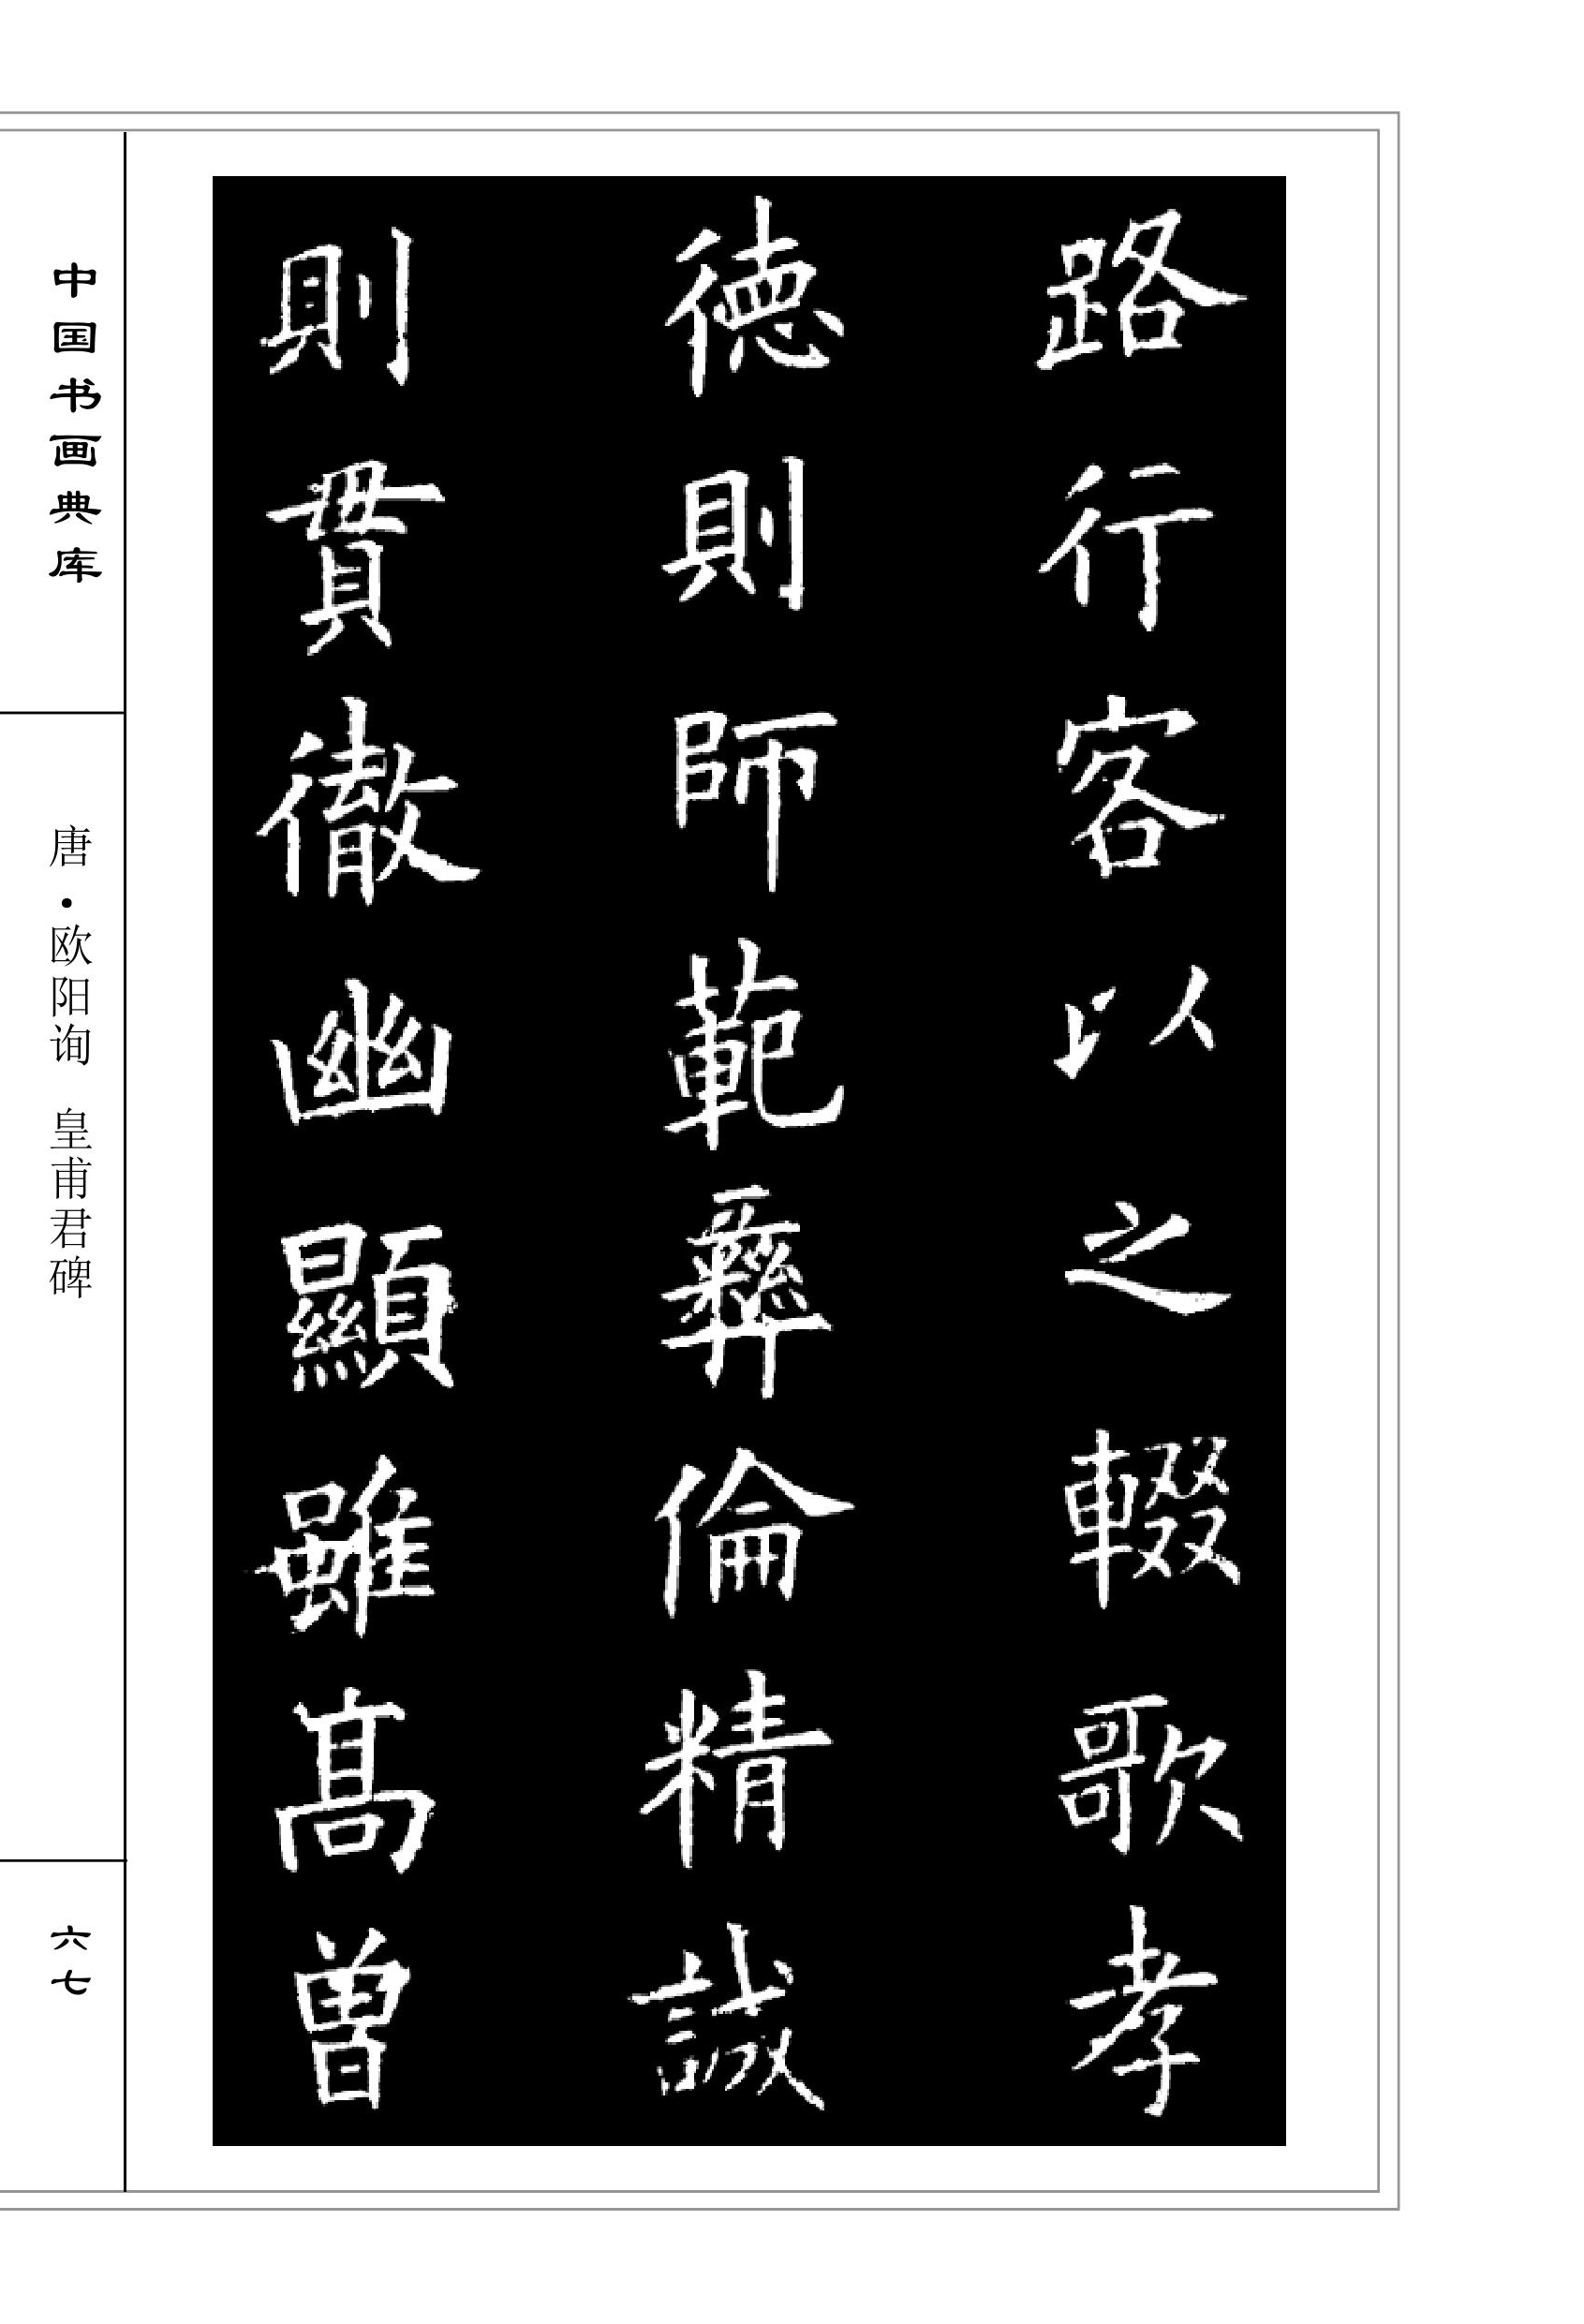 路行客以之輟歌孝
德則師範彝倫精誠
則貫徹幽顯雖高曾
中国书画典库
唐·欧阳询 皇甫君碑
六七